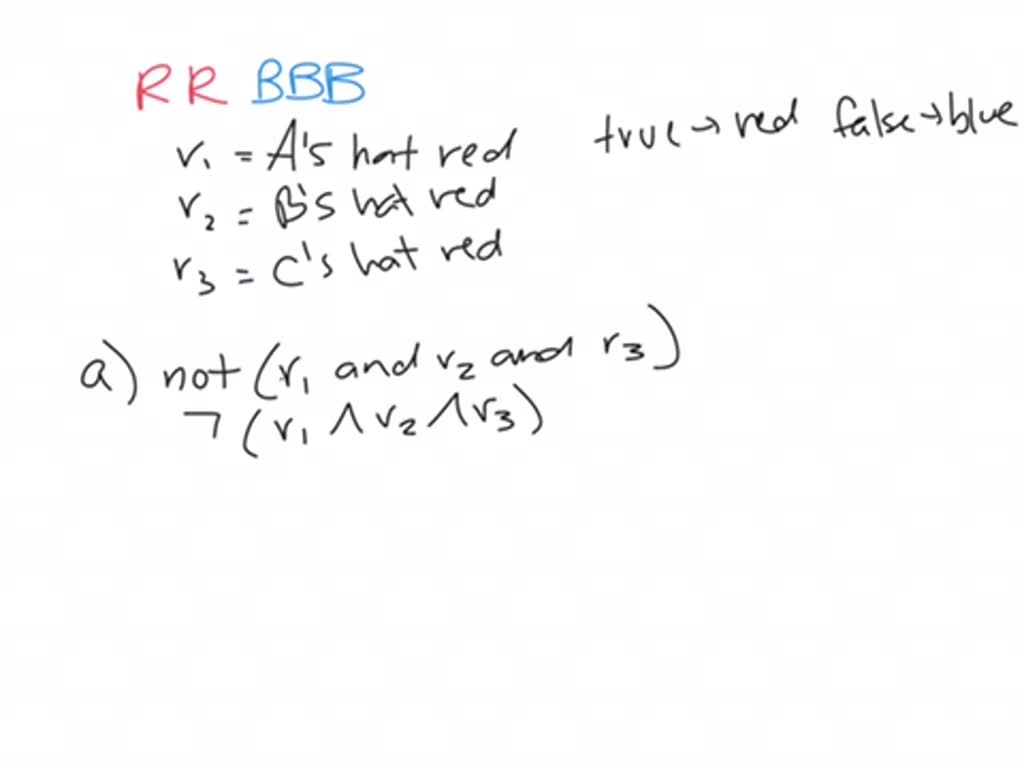 RR BBB
r₁ = A's hat red
true → red false → blue
r₂ = B's hat red
r₃ = C's hat red
a) not (r₁ and r₂ and r₃)
¬ (r₁ ∧ r₂ ∧ r₃)